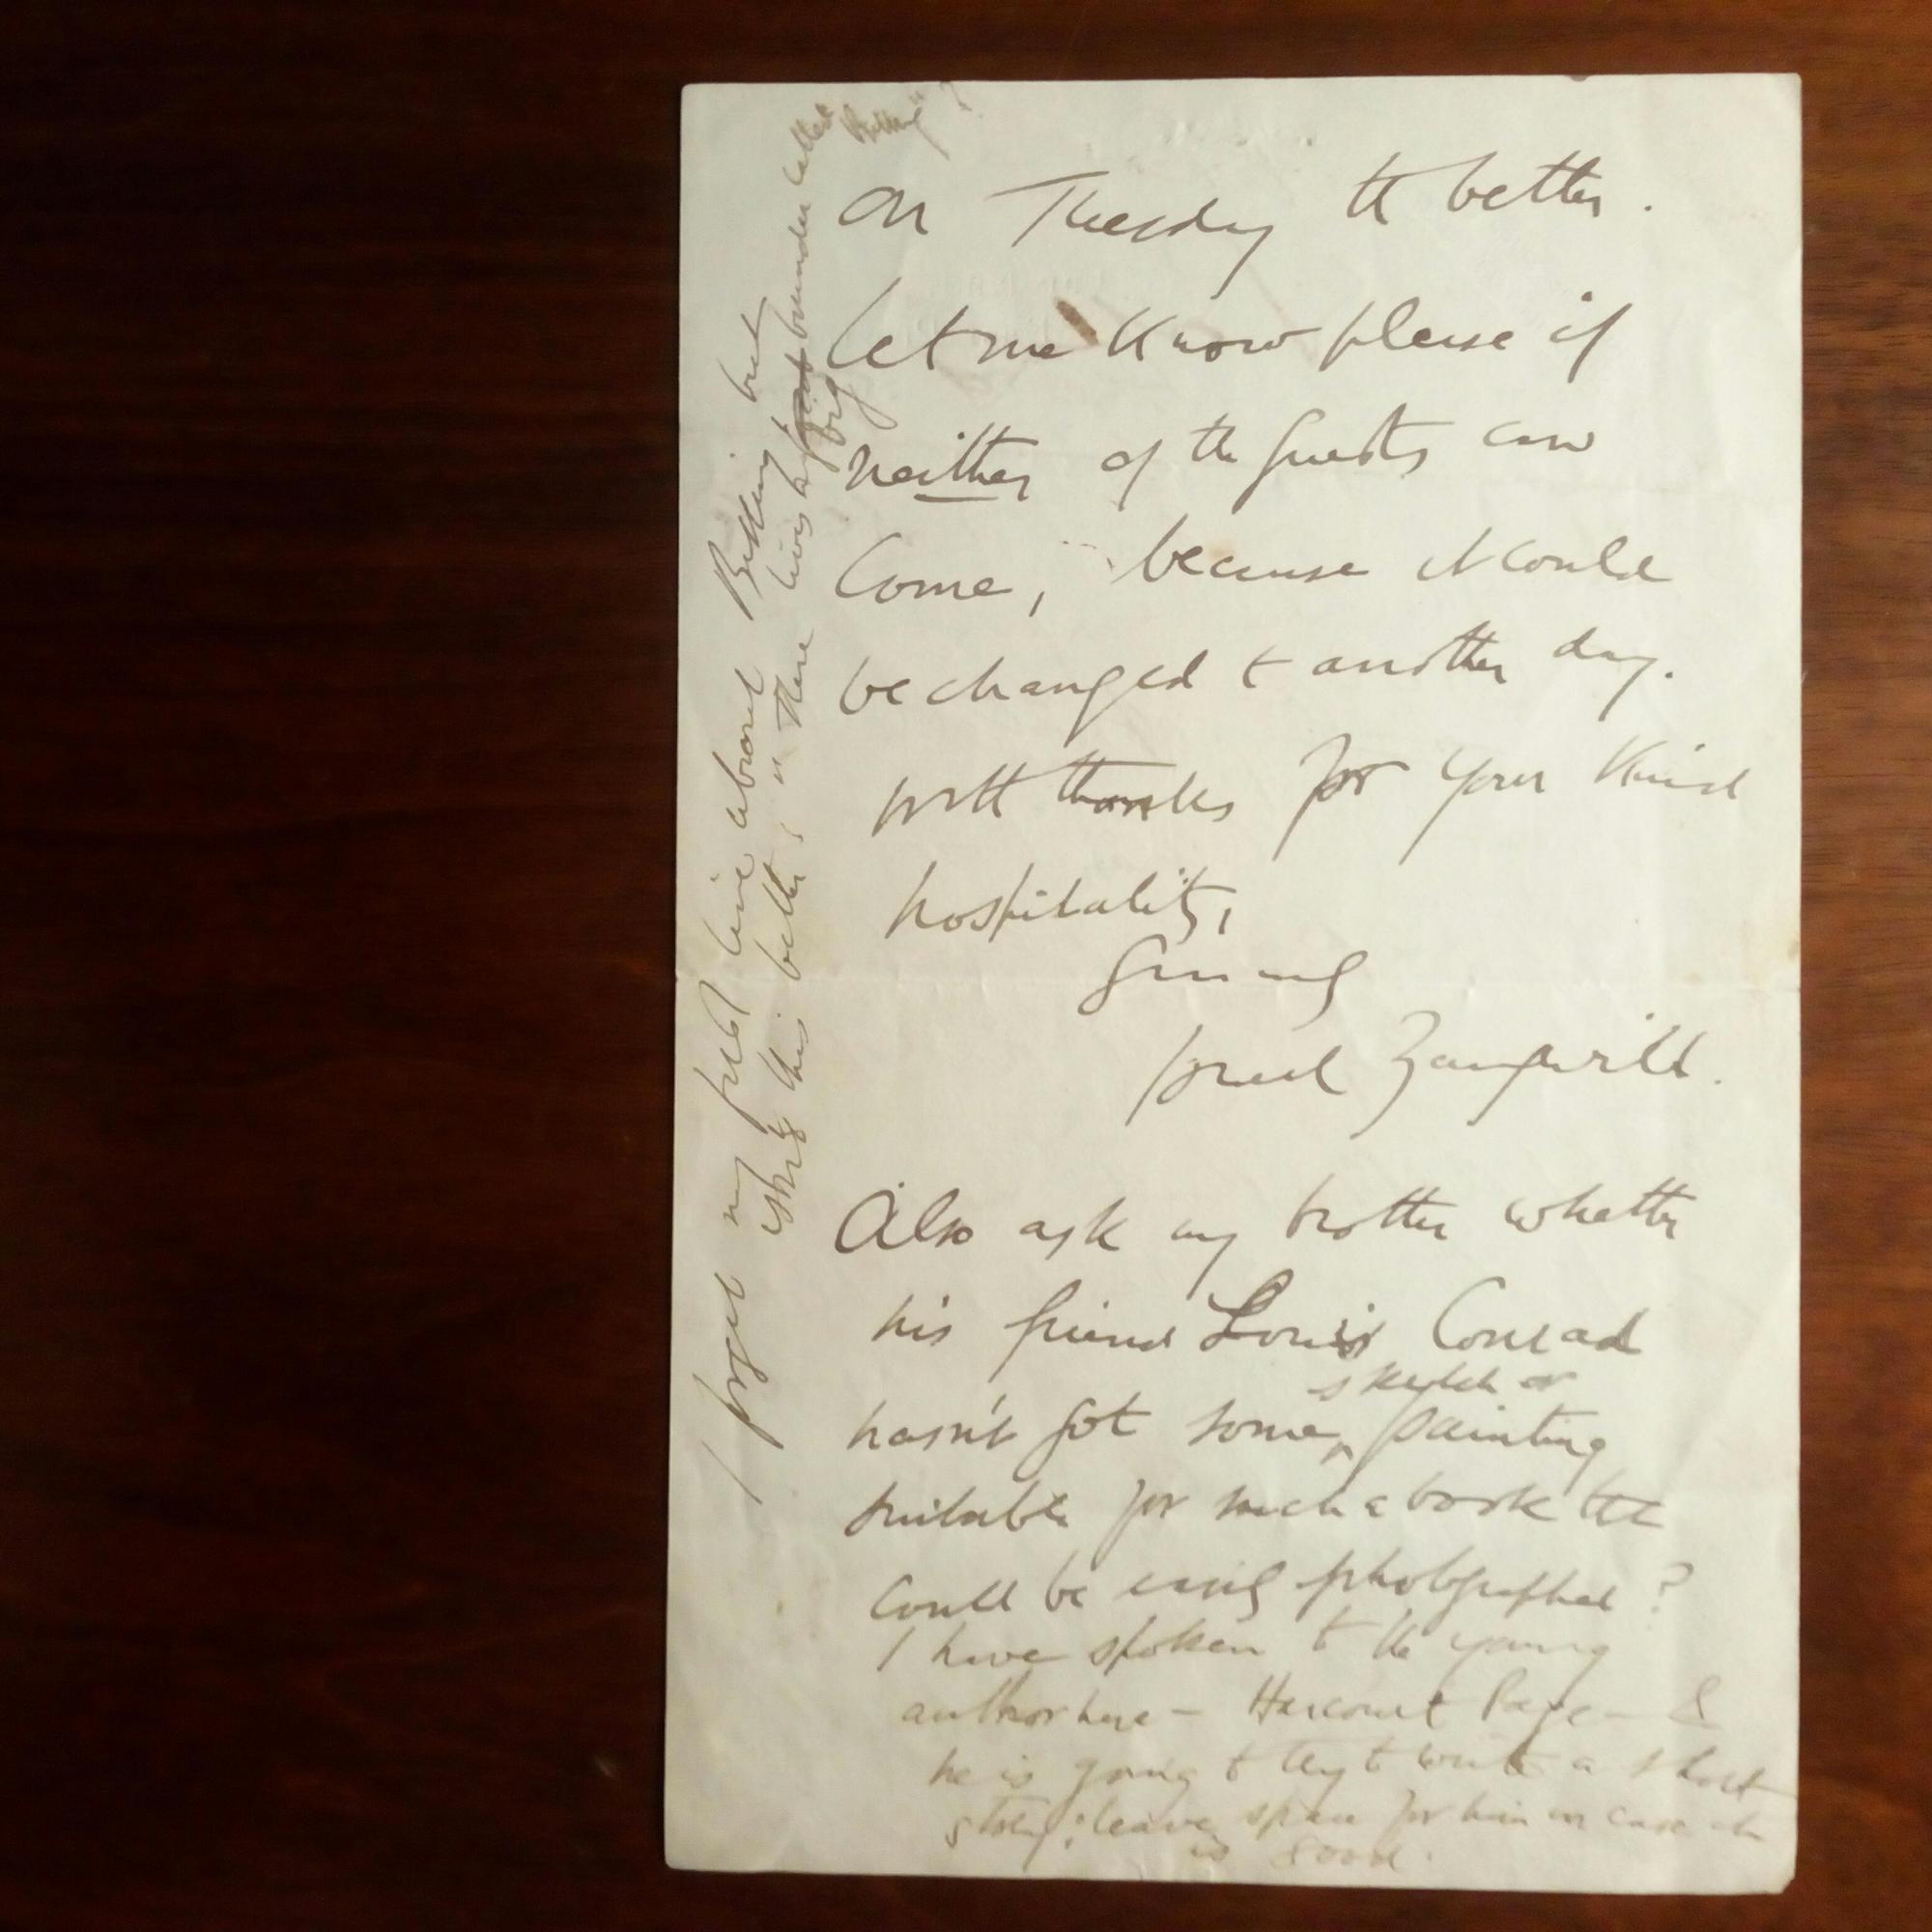 on Tuesday the better.
Let me know please if
neither of the guests can
come, because it could
be changed to another day.
with thanks for your kind
hospitality,
Israel Zangwill.
Also ask my brother whether
his friend Louis Conrad
hasn't got some sketch or painting
suitable for such a book that
could be easily photographed?
I have spoken to the young
author here - Harcourt Page - &
he is going to try to write a short
story; leave space for him in case it
is good.
I forget my first line about Betting but
this better is "There lives a great bounder called
big